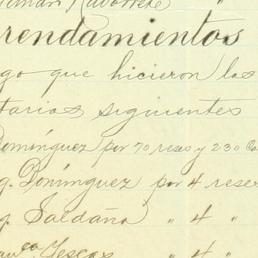 Navarrete "
rendamientos
go que hicieron los
tarios siguientes
Domínguez por 70 reses y 230 Ca
g. Domínguez por 4 rese
g. Saldaña " 4 "
co. Yescas " 4 "